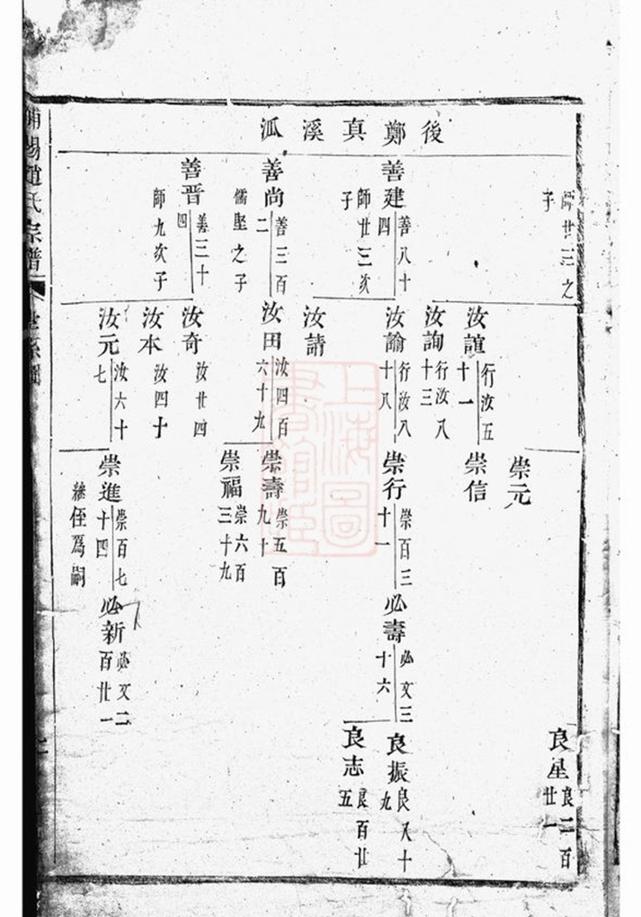 後鄭真溪派
師廿三之子
善建 善八十四
師廿三次子
善尚 善三百二
儒堅之子
善晋 善三十四
師九次子
汝誼 行汝五十一
汝詢 行汝八十三
汝諭 行汝八十八
汝請
汝田 汝四百六十九
汝奇 汝廿四
汝本 汝四十
汝元 汝六十七
崇元
崇信
崇行 崇百三十一
崇壽 崇五百九十
崇福 崇六百三十九
崇進 崇百七十四
侄爲嗣
必壽 必文三十六
必新 必文二百廿一
良星 良二百廿一
良振 良八十九
良志 良百廿五
趙氏宗譜
世系圖